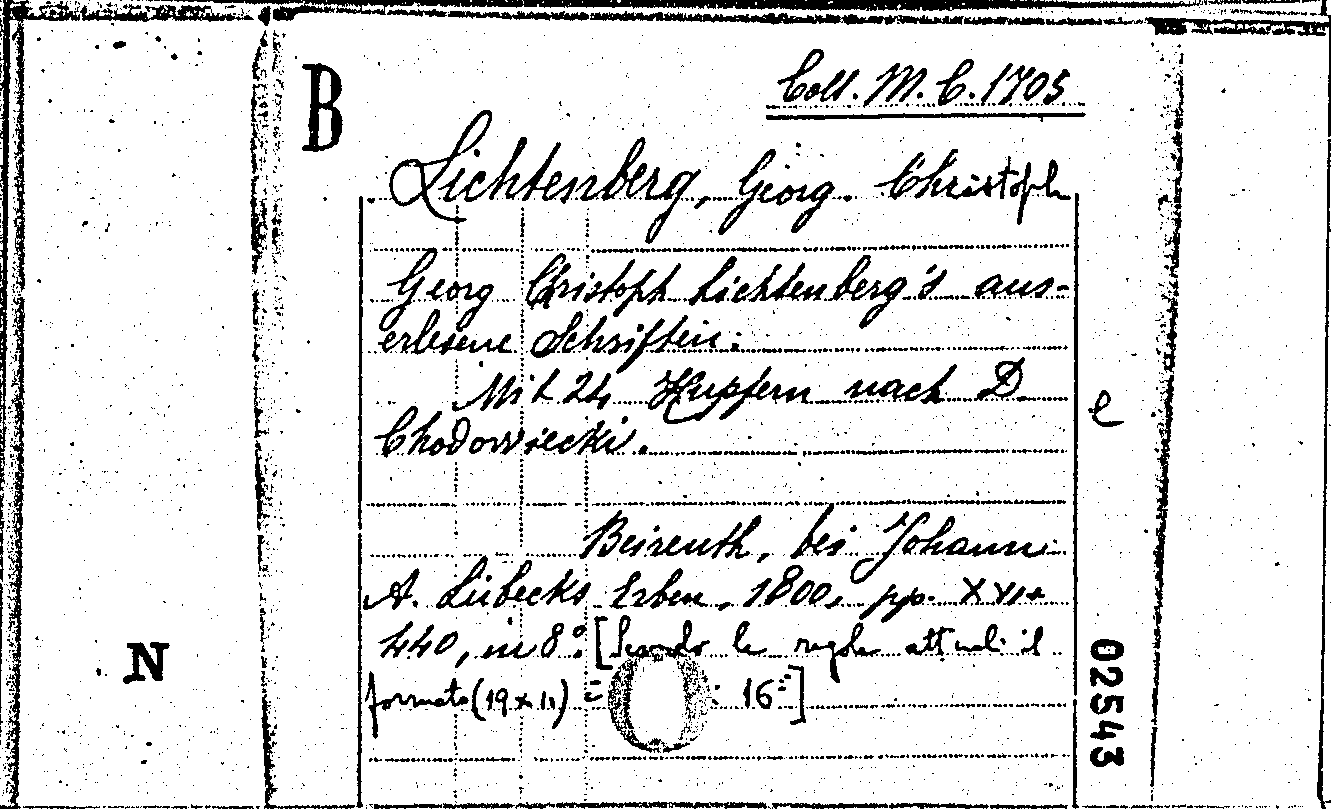 B
Coll. M. C. 1705
Lichtenberg, Georg. Christoph
Georg Christoph Lichtenberg's aus-
erlesene Schriften:
Mit 24 Kupfern nach D.
Chodowiecki.
e
Beireuth, bei Johann
A. Lübecks Erben, 1800, pp. XVI+
440, in 8.° [Secondo le regole attuali il
N
formato (19 x 11) = : 16°]
02543